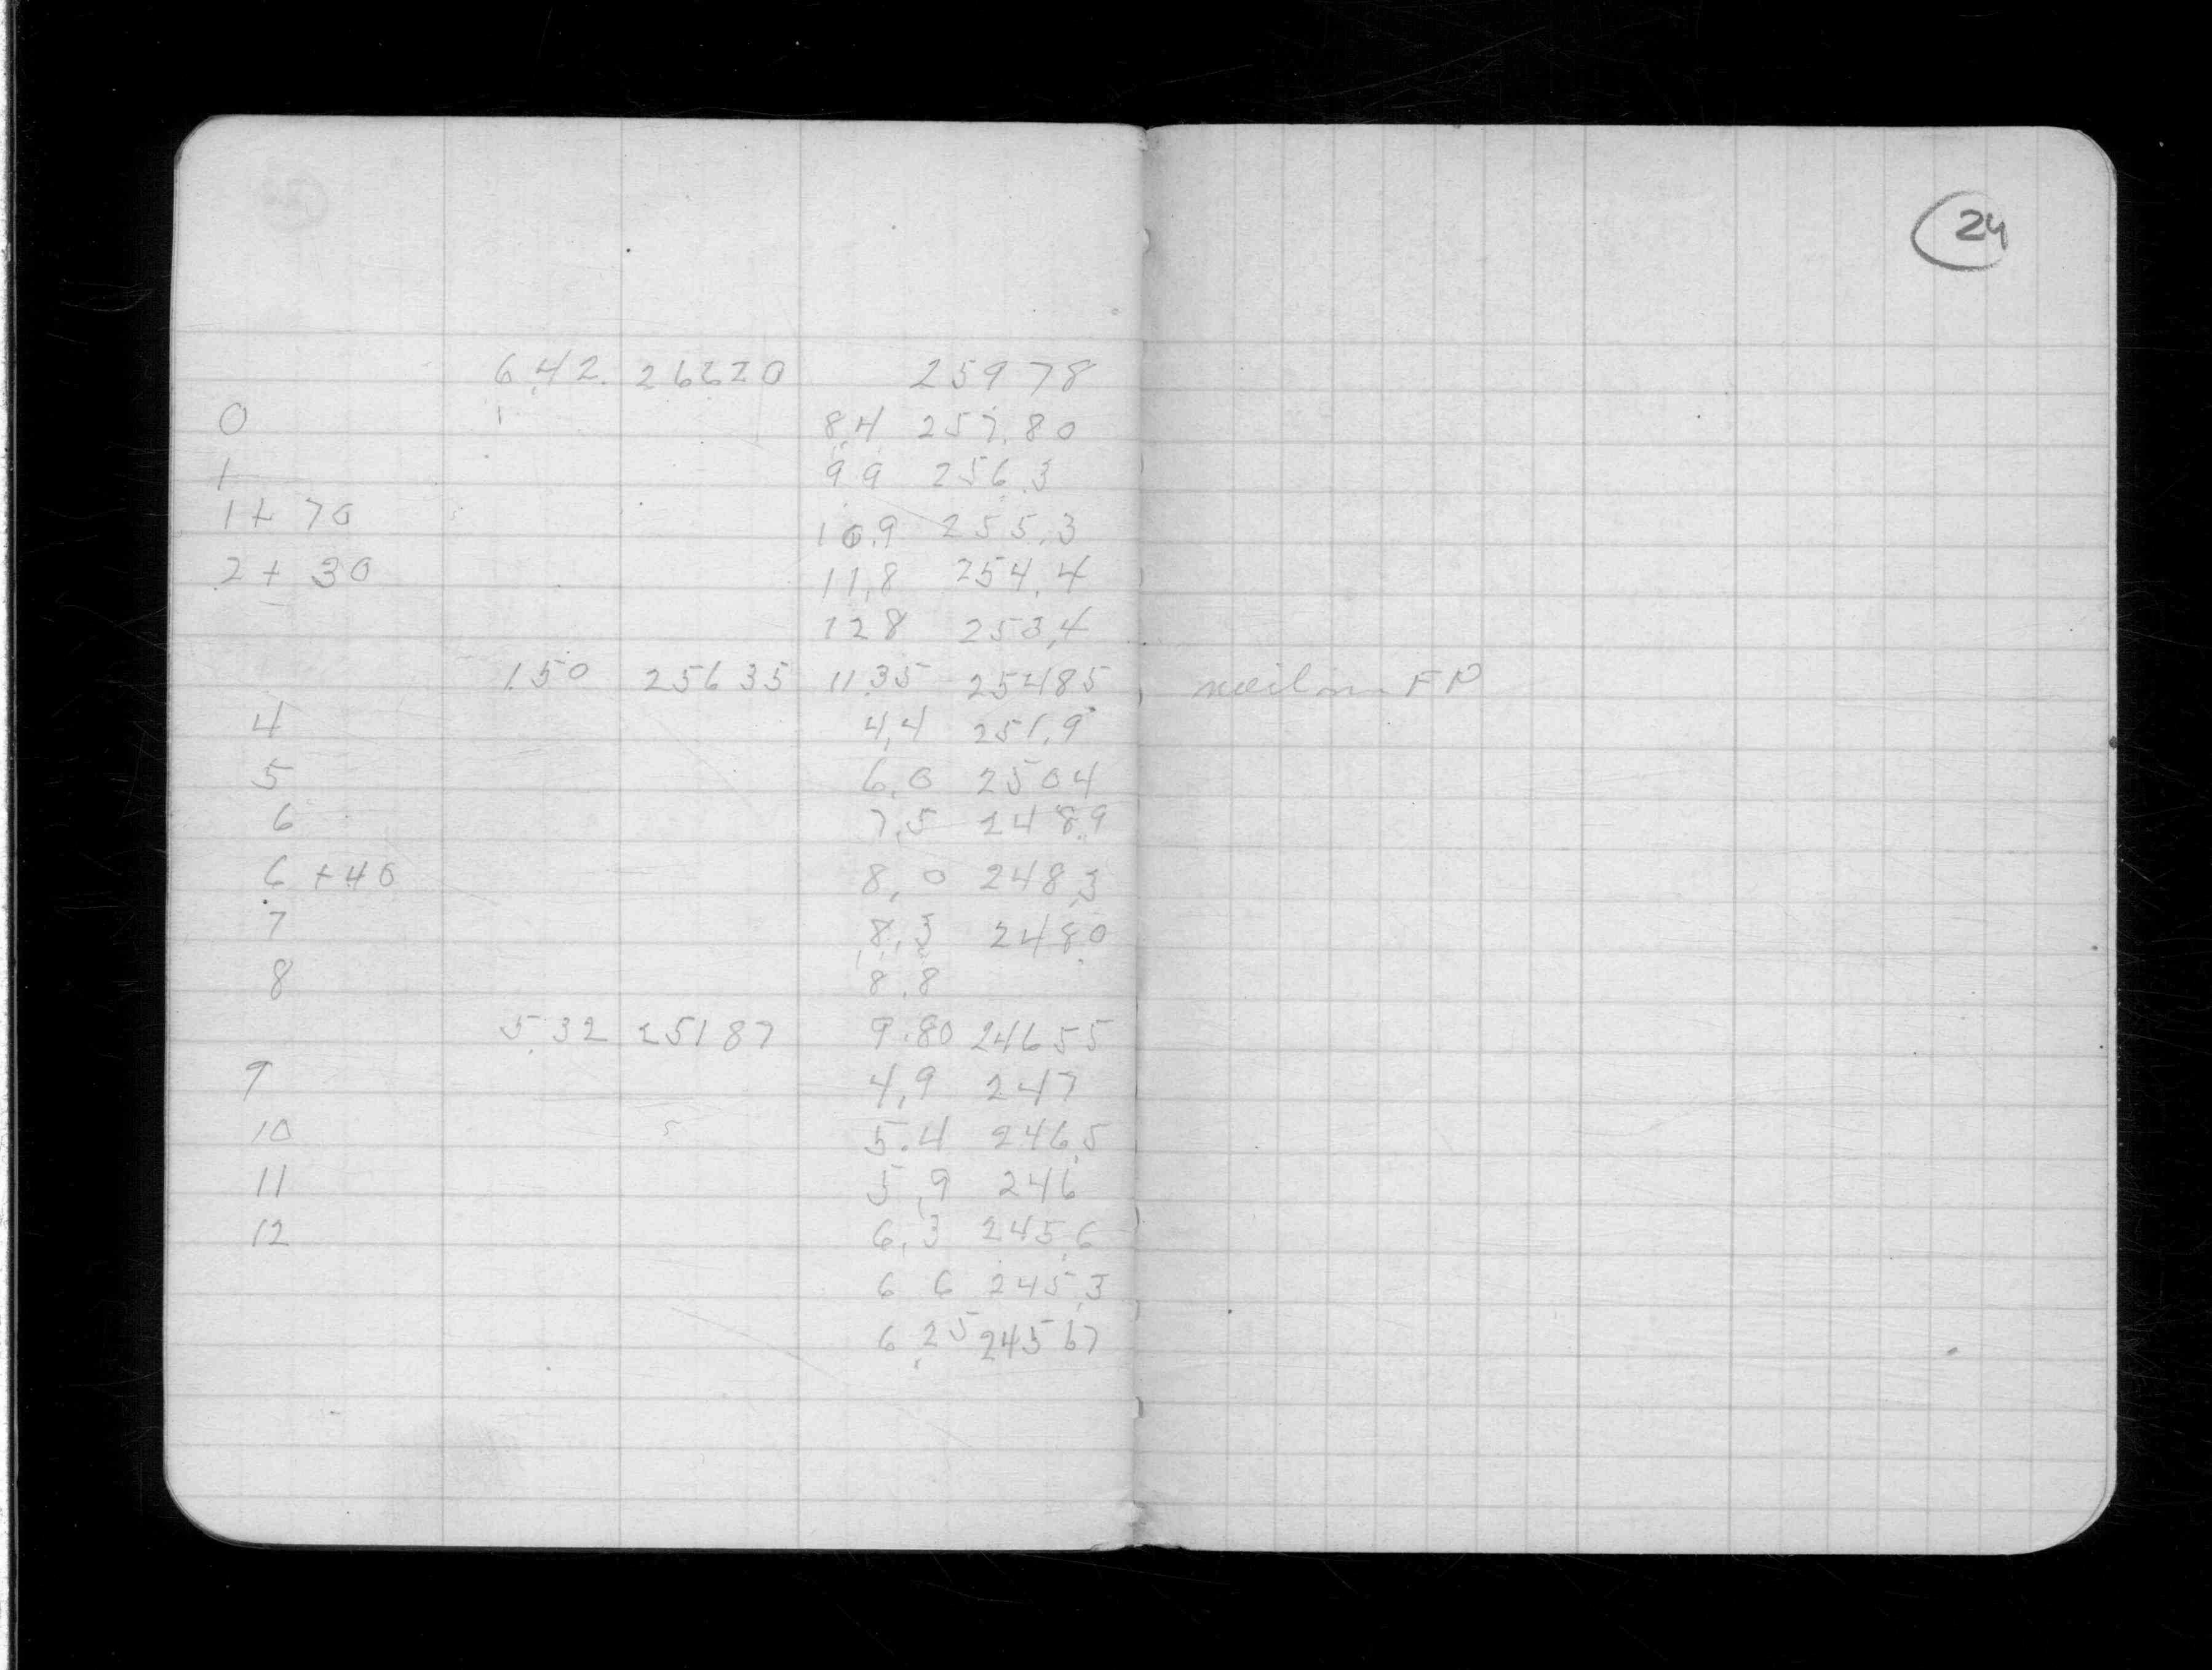 24
6.42. 26220 25978
0 8.4 257.80
1 9 9 256.3
1 + 70 10.9 255.3
2 + 30 11.8 254.4
12 8 253.4
1.50 25635 11.35 25485 nail in FP
4 4.4 251.9
5 6.0 2504
6 7.5 248.9
6 + 40 8.0 248.3
7 8.3 248.0
8 8.8
5.32 25187 9.80 24655
9 4.9 247
10 5.4 246.5
11 5.9 246
12 6.3 245.6
6 6 245.3
6.25 24567